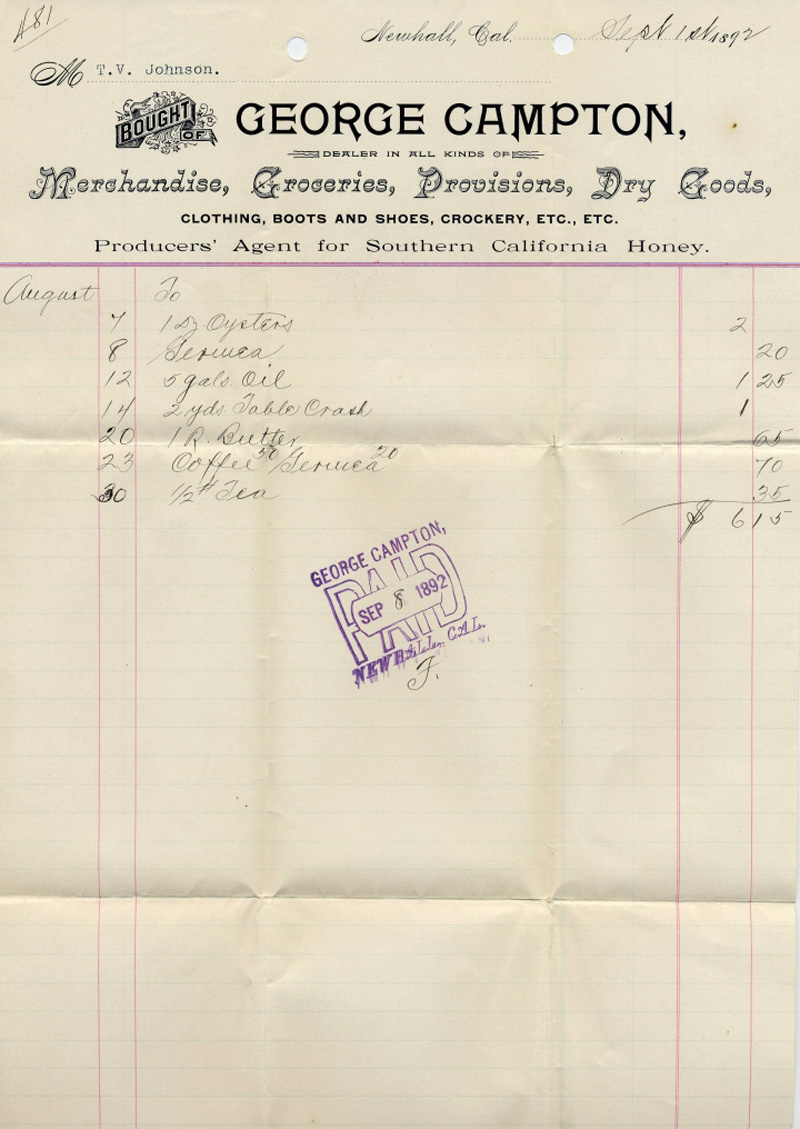 A81
Newhall, Cal. Sept 1st 1892
M T.V. Johnson.
BOUGHT OF GEORGE CAMPTON,
DEALER IN ALL KINDS OF
Merchandise, Groceries, Provisions, Dry Goods,
CLOTHING, BOOTS AND SHOES, CROCKERY, ETC., ETC.
Producers' Agent for Southern California Honey.
August To
7 1 dz Oysters 2
8 Germea 20
12 5 gals. Oil 1 25
14 2 yds. Table Crash 1
20 1 R. Butter 65
23 Coffee 50 Germea 20 70
30 1/2 # Tea 35
$ 6 15
GEORGE CAMPTON,
PAID
SEP 8 1892
NEWHALL, CAL.
F.